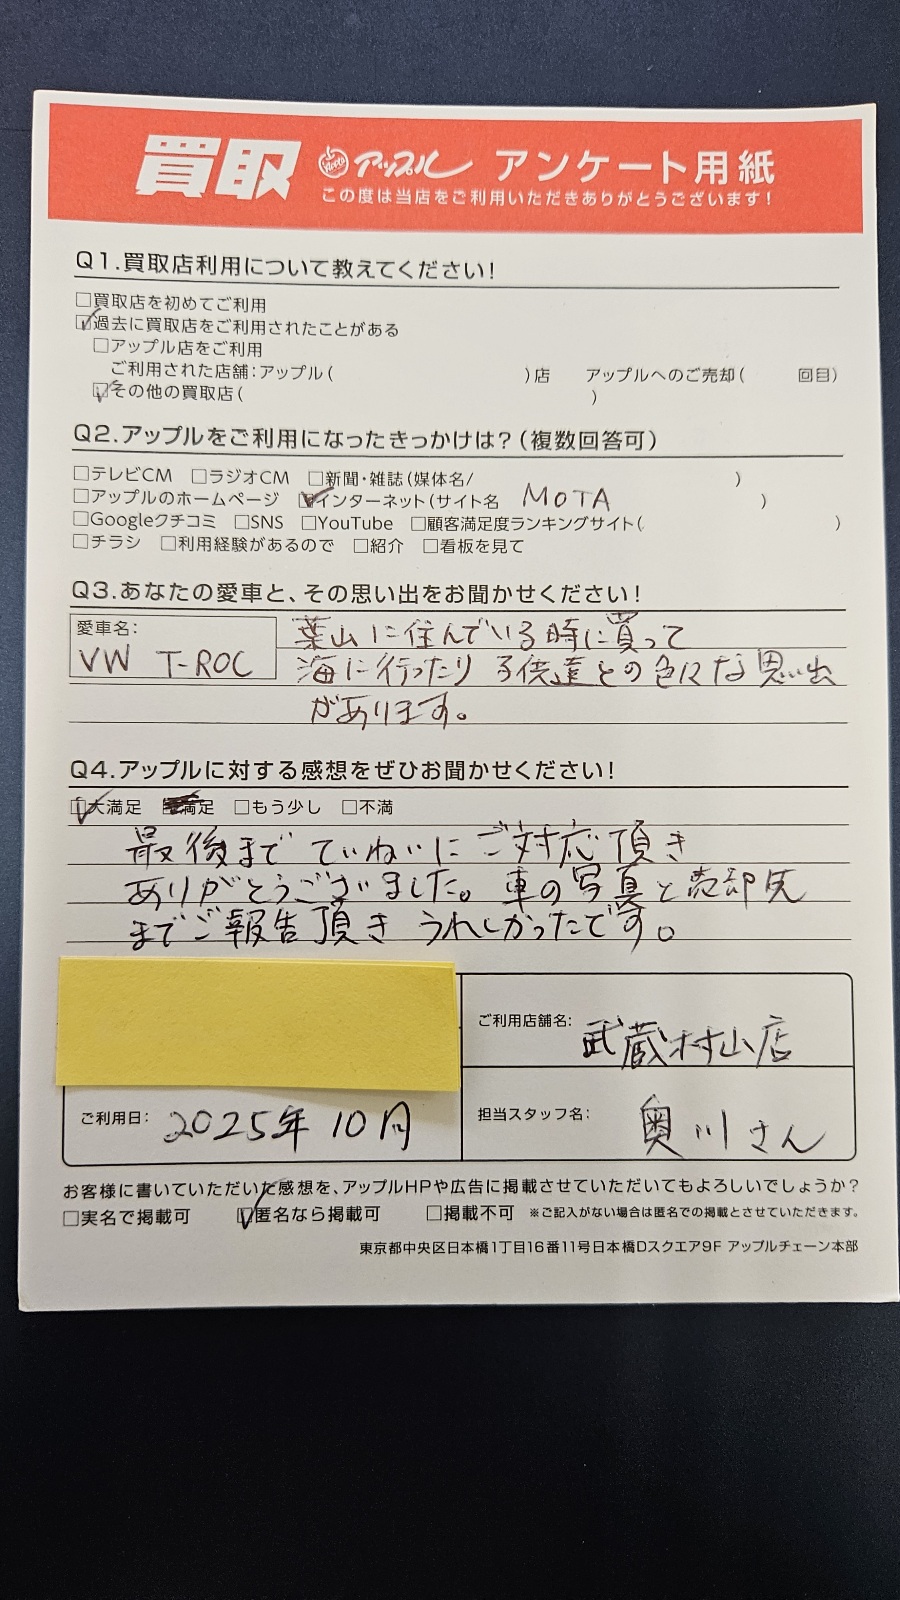 買取 Apple アップル アンケート用紙
この度は当店をご利用いただきありがとうございます!
Q1.買取店利用について教えてください!
□買取店を初めてご利用
☑過去に買取店をご利用されたことがある
□アップル店をご利用
ご利用された店舗:アップル( )店 アップルへのご売却( 回目)
☑その他の買取店( )
Q2.アップルをご利用になったきっかけは?(複数回答可)
□テレビCM □ラジオCM □新聞・雑誌(媒体名/ )
□アップルのホームページ ☑インターネット(サイト名 MOTA )
□Googleクチコミ □SNS □YouTube □顧客満足度ランキングサイト( )
□チラシ □利用経験があるので □紹介 □看板を見て
Q3.あなたの愛車と、その思い出をお聞かせください!
愛車名:
VW T-ROC
葉山に住んでいる時に買って
海に行ったり 子供達との色々な思い出
があります。
Q4.アップルに対する感想をぜひお聞かせください!
☑大満足 満足 □もう少し □不満
最後まで ていねいに ご対応 頂き
ありがとうございました。 車の写真と売却先
までご報告頂き うれしかったです。
ご利用店舗名: 武蔵村山店
ご利用日: 2025年 10月
担当スタッフ名: 奥川さん
お客様に書いていただいた感想を、アップルHPや広告に掲載させていただいてもよろしいでしょうか?
□実名で掲載可 ☑匿名なら掲載可 □掲載不可 ※ご記入がない場合は匿名での掲載とさせていただきます。
東京都中央区日本橋1丁目16番11号日本橋Dスクエア9F アップルチェーン本部